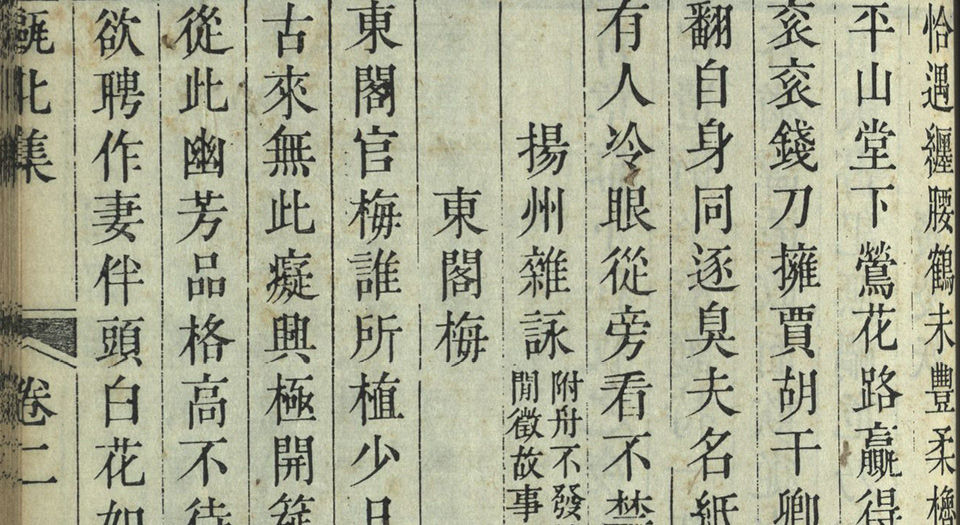 恰遇纏腰鶴未豐柔櫓
平山堂下鶯花路贏得
衮衮錢刀擁賈胡干卿
翻自身同逐臭夫名紙
有人冷眼從旁看不禁
揚州雜詠附舟不發閒徵故事
東閣梅
東閣官梅誰所植少日
古來無此癡興極開筵
從此幽芳品格高不待
欲聘作妻伴頭白花如
甌北集 卷二